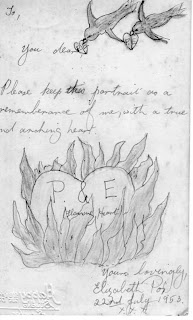 To,
You dear
Please keep this portrait as a
rememberance of me, with a true
and anching heart.
P. & E
(Flaming Heart)
Yours lovingly,
Elizabeth
22nd July 1953